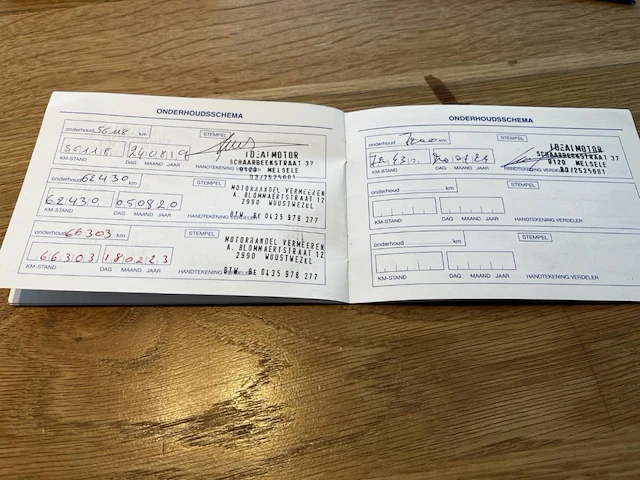 ONDERHOUDSSCHEMA
onderhoud 56118 km
STEMPEL
56118 240819
KM-STAND DAG MAAND JAAR HANDTEKENING
IDEALMOTOR
SCHAARBEEKSTRAAT 37
9120 MELSELE
03/2525601
onderhoud 62430 km
62430 050820
KM-STAND DAG MAAND JAAR HANDTEKENING VERDELER
MOTORHANDEL VERMEEREN
A. BLOMMAERTSTRAAT 12
2990 WUUSTWEZEL
BTW BE 0435 978 277
onderhoud 66303 km
STEMPEL
66303 180223
KM-STAND DAG MAAND JAAR HANDTEKENING VERDELER
MOTORHANDEL VERMEEREN
A. BLOMMAERTSTRAAT 12
2990 WUUSTWEZEL
BTW BE 0435 978 277
ONDERHOUDSSCHEMA
onderhoud km
STEMPEL
KM-STAND DAG MAAND JAAR HANDTEKENING VERDELER
IDEALMOTOR
SCHAARBEEKSTRAAT 37
9120 MELSELE
03/2525601
KM-STAND DAG MAAND JAAR HANDTEKENING VERDELER
onderhoud km
STEMPEL
KM-STAND DAG MAAND JAAR HANDTEKENING VERDELER